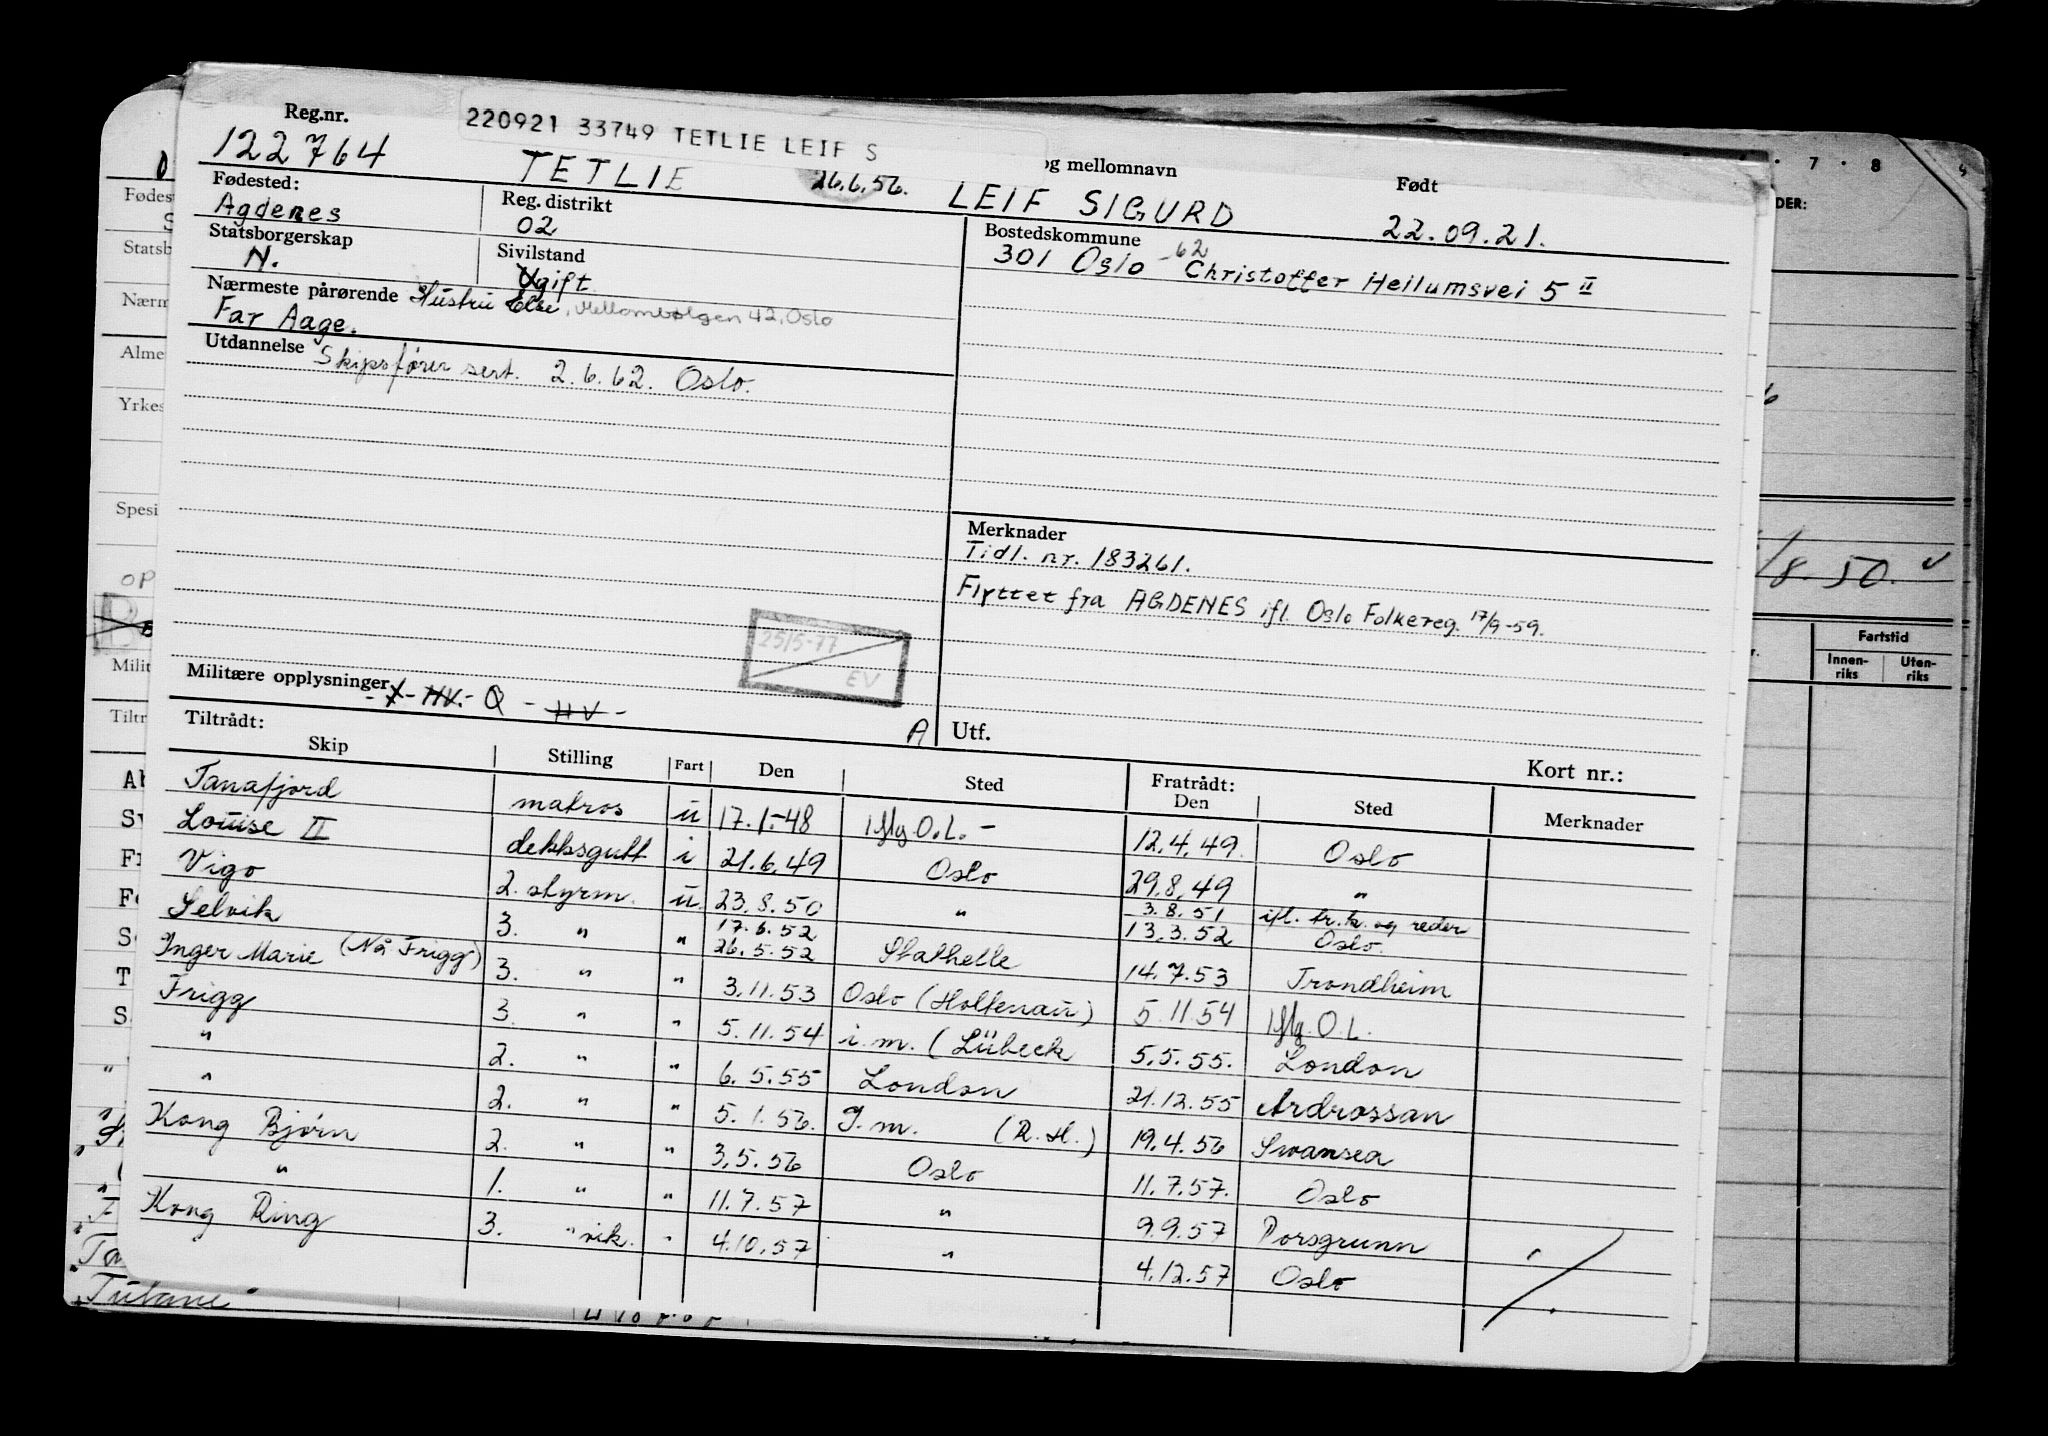 220921 33749 TETLIE LEIF S
Reg.nr.
122764 TETLIE 26.6.56. LEIF SIGURD 22.09.21.
og mellomnavn Født
Fødested: Agdenes
Reg. distrikt 02
Bostedskommune
301 Oslo - 62 Christoffer Hellumsvei 5 II
Statsborgerskap N.
Sivilstand Ugift
Nærmeste pårørende Hustru Else, Mellombølgen 42, Oslo
Far Aage.
Utdannelse Skipsfører sert. 2.6.62. Oslo.
Merknader
Tidl. nr. 183261.
Flyttet fra AGDENES ifl. Oslo Folkereg. 17/9-59.
25/5-77
EV
Militære opplysninger - HV - Q - HV -
A Utf.
Tiltrådt: Kort nr.:
Skip Stilling Fart Den Sted Fratrådt: Den Sted Merknader
Tanafjord matros u 17.1.-48 Iflg. O.L. - 12.4.49. Oslo
Louise II dekksgutt i 21.6.49 Oslo 29.8.49 "
Vigo 2. styrm. u. 23.8.50 " 3.8.51 ifl. br.k. og reder
Selvik 3. " " 17.6.52 13.3.52 Oslo.
Inger Marie (Nå Frigg) 3. " " 26.5.52 Stathelle 14.7.53 Trondheim
Frigg 3. " " 3.11.53 Oslo (Holtenau) 5.11.54 Iflg. O.L.
" 2. " " 5.11.54 i.m. (Lübeck 5.5.55. London
" 2. " " 6.5.55 London 21.12.55 Ardrossan
Kong Bjørn 2. " " 5.1.56. I.m. (R.H.) 19.4.56 Swansea
3.5.56 Oslo 11.7.57. Oslo
" 1. " " 11.7.57 " 9.9.57 Porsgrunn "
Kong Ring 3. " vik. " 4.10.57 " 4.12.57 Oslo
7 · 8
DER:
/8. 50. v
Fartstid
Innen-riks Uten-riks
Fødest
Statsb
Nærm
Alme
Yrkes
Spesi
OP
Milit
Tiltr